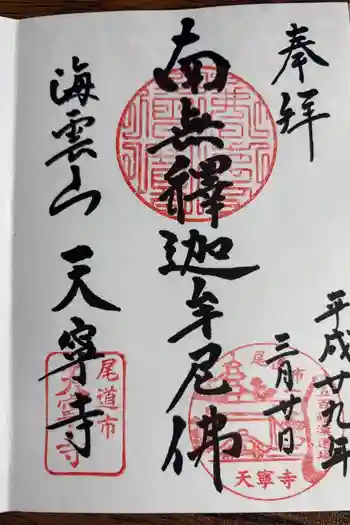 奉拝
平成廿九年
三月廿日
南無釋迦牟尼佛
海雲山 天寧寺
尾道市
天寧寺
尾道市
天寧寺